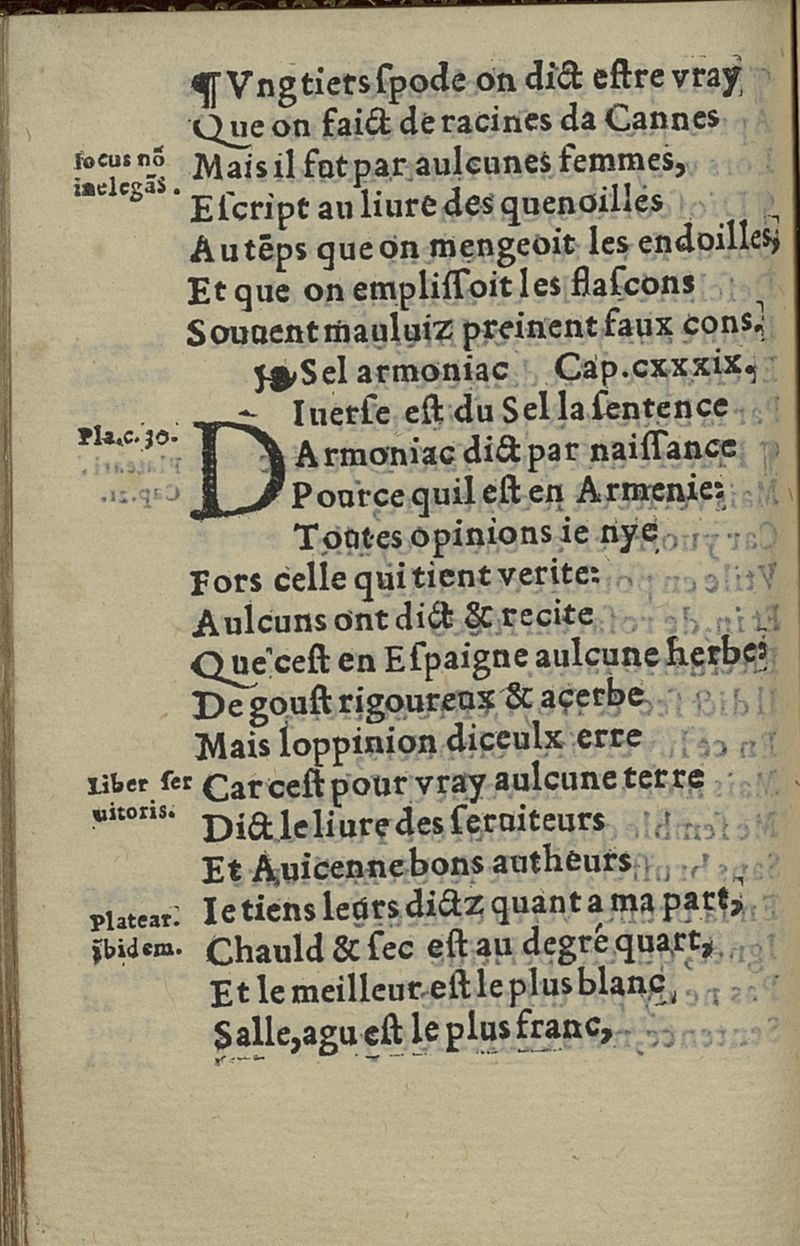 ¶ Vng tiers ſpode on dict eſtre vray
Que on faict de racines da Cannes
Iocus nō
inelegās.
Mais il fut par aulcunes femmes,
Eſcript au liure des quenoilles
Au tēps que on mengeoit les endoilles,
Et que on empliſſoit les flaſcons
Souuent mauluiz preinent faux cons.
Sel armoniac Cap.cxxxix.
Pla.c.30.
DIuerſe eſt du Sel la ſentence
Armoniac dict par naiſſance
Pource quil eſt en Armenie:
Toutes opinions ie nye
Fors celle qui tient verite:
Aulcuns ont dict & recite
Que ceſt en Eſpaigne aulcune herbe:
De gouſt rigoureux & acerbe
Mais loppinion diceulx erre
Liber ſer
uitoris.
Car ceſt pour vray aulcune terre
Dict le liure des ſeruiteurs
Et Auicenne bons autheurs
Platear.
ibidem.
Ie tiens leurs dictz quant a ma part,
Chauld & ſec eſt au degré quart,
Et le meilleur eſt le plus blanc,
Salle,agu eſt le plus franc,